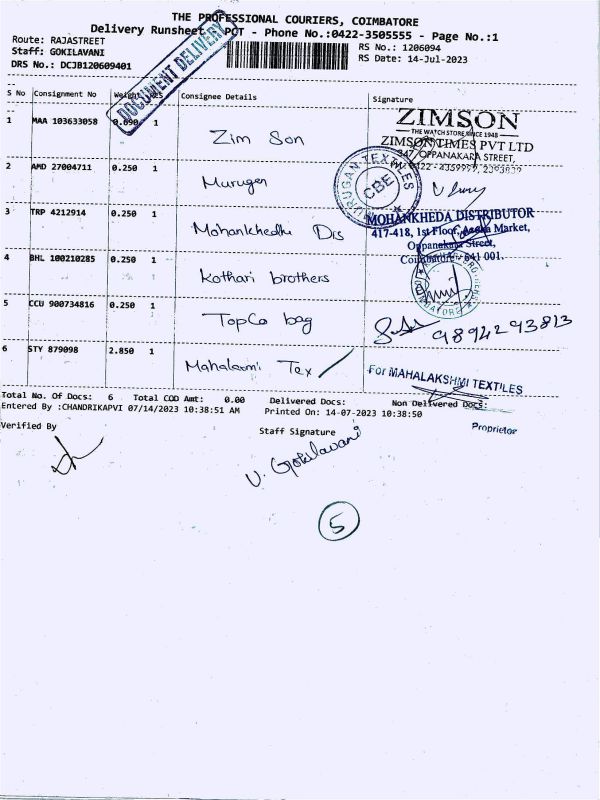 THE PROFESSIONAL COURIERS, COIMBATORE
Delivery Runsheet PCT - Phone No.:0422-3505555 - Page No.:1
Route: RAJASTREET
Staff: GOKILAVANI
DRS No.: DCJB120609401
RS No.: 1206094
RS Date: 14-Jul-2023
DOCUMENT DELIVERY
S No Consignment No Weight PCS Consignee Details Signature
1 MAA 103633058 0.090 1 Zim Son
ZIMSON
THE WATCH STORE SINCE 1948
ZIMSON TIMES PVT LTD
347, OPPANAKARA STREET,
2 AMD 27004711 0.250 1 Murugan
MURUGAN TEXTILES
CBE
3 TRP 4212914 0.250 1 Mohankhedha Drs
MOHANKHEDA DISTRIBUTOR
417-418, 1st Floor, Asoka Market,
Oppanakara Street,
Coimbatore - 641 001.
4 BHL 100210285 0.250 1 Kothari brothers
5 CCU 900734816 0.250 1 TopCo bag
9894293813
6 STY 879098 2.850 1 Mahalaxmi Tex
For MAHALAKSHMI TEXTILES
Proprietor
Total No. Of Docs: 6 Total COD Amt: 0.00 Delivered Docs: Non Delivered Docs:
Entered By :CHANDRIKAPVI 07/14/2023 10:38:51 AM Printed On: 14-07-2023 10:38:50
Verified By Staff Signature
V. Gokilavani
5